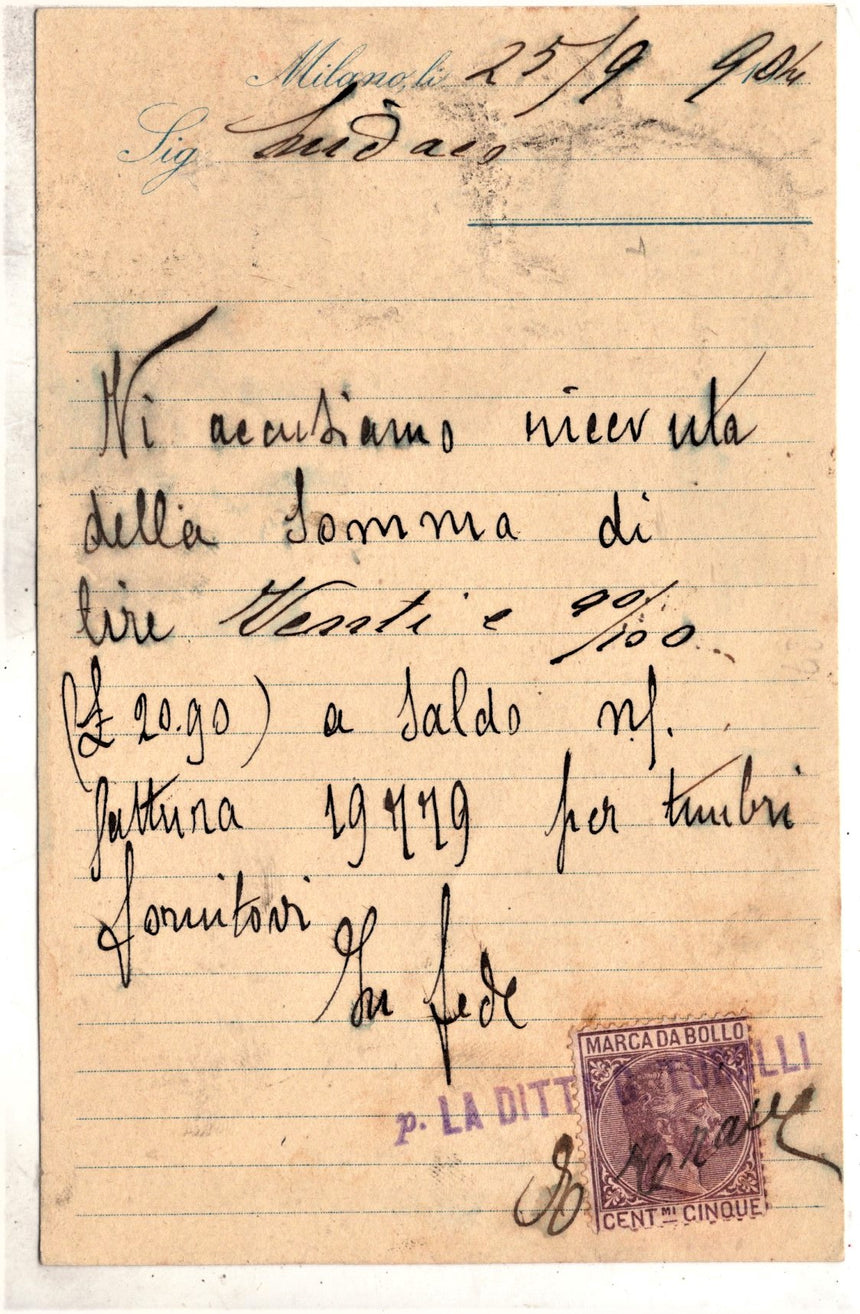 Milano, li 25/9 904
Sig Sindaco
Vi accusiamo ricevuta
della somma di
lire Venti e 90/100
(£ 20.90) a saldo n/.
fattura 19779 per timbri
fornitovi
In fede
MARCA DA BOLLO
p. LA DITTA
CENT.MI CINQUE